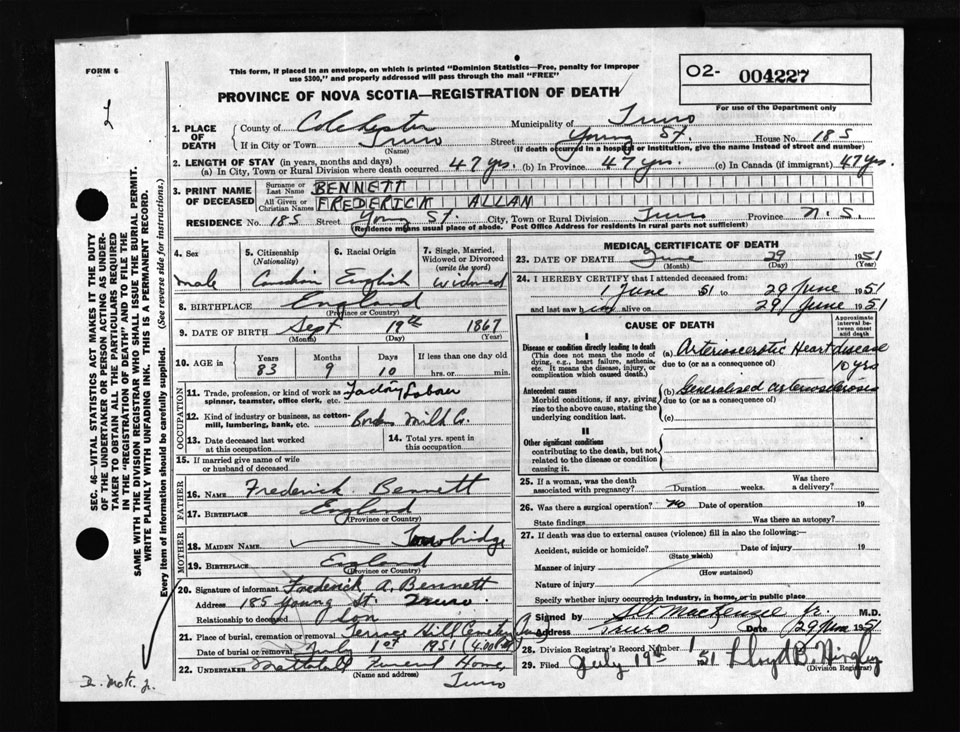 FORM 6
This form, if placed in an envelope, on which is printed "Dominion Statistics—Free, penalty for improper
use $300," and properly addressed will pass through the mail "FREE"
PROVINCE OF NOVA SCOTIA—REGISTRATION OF DEATH
02- 004227
For use of the Department only
1. PLACE OF DEATH
County of Colchester Municipality of Truro
If in City or Town Truro (Name) Street Young St. House No. 185
(If death occurred in a hospital or institution, give the name instead of street and number)
2. LENGTH OF STAY (in years, months and days)
(a) In City, Town or Rural Division where death occurred 47 yrs. (b) In Province 47 yrs. (c) In Canada (if immigrant) 47 yrs.
3. PRINT NAME OF DECEASED
Surname or Last Name BENNETT
All Given or Christian Names FREDERICK ALLAN
RESIDENCE No. 185 Street Young St. City, Town or Rural Division Truro Province N.S.
(Residence means usual place of abode. Post Office Address for residents in rural parts not sufficient)
4. Sex
male
5. Citizenship (Nationality)
Canadian
6. Racial Origin
English
7. Single, Married, Widowed or Divorced (write the word)
Widowed
8. BIRTHPLACE England
(Province or Country)
9. DATE OF BIRTH Sept 19th 1867
(Month) (Day) (Year)
10. AGE in Years 83 Months 9 Days 10 If less than one day old hrs. or min.
OCCUPATION
11. Trade, profession, or kind of work as spinner, teamster, office clerk, etc. Factory Labour
12. Kind of industry or business, as cotton-mill, lumbering, bank, etc. Milk Co.
13. Date deceased last worked at this occupation
14. Total yrs. spent in this occupation
15. If married give name of wife or husband of deceased
FATHER
16. NAME Frederick Bennett
17. BIRTHPLACE England
(Province or Country)
MOTHER
18. MAIDEN NAME Trowbridge
19. BIRTHPLACE England
(Province or Country)
20. Signature of informant Frederick A. Bennett
Address 185 Young St. Truro
Relationship to deceased son
21. Place of burial, cremation or removal Terrace Hill Cemetery
Date of burial or removal July 1st 1951 (4.00 P.M.)
22. UNDERTAKER Mattatall Funeral Home
(Name and address) Truro
MEDICAL CERTIFICATE OF DEATH
23. DATE OF DEATH June 29 1951
(Month) (Day) (Year)
24. I HEREBY CERTIFY that I attended deceased from:
1 June 1951 to 29 June 1951
and last saw him alive on 29 June 1951
CAUSE OF DEATH
Approximate interval between onset and death
I
Disease or condition directly leading to death
(This does not mean the mode of dying, e.g., heart failure, asthenia, etc. It means the disease, injury, or complication which caused death.)
(a) Arteriosclerotic Heart disease
due to (or as a consequence of) 10 yrs
Antecedent causes
Morbid conditions, if any, giving rise to the above cause, stating the underlying condition last.
(b) Generalised arteriosclerosis
due to (or as a consequence of)
(c)
II
Other significant conditions
contributing to the death, but not related to the disease or condition causing it.
25. If a woman, was the death associated with pregnancy? Duration weeks. Was there a delivery?
26. Was there a surgical operation? no Date of operation 19
State findings Was there an autopsy?
27. If death was due to external causes (violence) fill in also the following:
Accident, suicide or homicide? Date of injury 19
(State which)
Manner of injury
(How sustained)
Nature of injury
Specify whether injury occurred in industry, in home, or in public place
Signed by MacKenzie Jr. M.D.
Address Truro Date 29 June 1951
28. Division Registrar's Record Number
29. Filed July 19th 1951 Lloyd B.
(Division Registrar)
SEC. 46—VITAL STATISTICS ACT MAKES IT THE DUTY
OF THE UNDERTAKER OR PERSON ACTING AS UNDER-
TAKER TO OBTAIN ALL THE PARTICULARS REQUIRED
IN THE "REGISTRATION OF DEATH" AND TO FILE THE
SAME WITH THE DIVISION REGISTRAR WHO SHALL ISSUE THE BURIAL PERMIT.
WRITE PLAINLY WITH UNFADING INK. THIS IS A PERMANENT RECORD.
Every item of information should be carefully supplied. (See reverse side for instructions.)